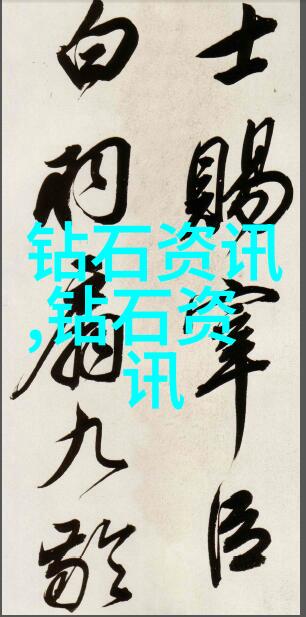 士賜宰臣
白羽扇九齡
钻石资讯
,钻石资
讯